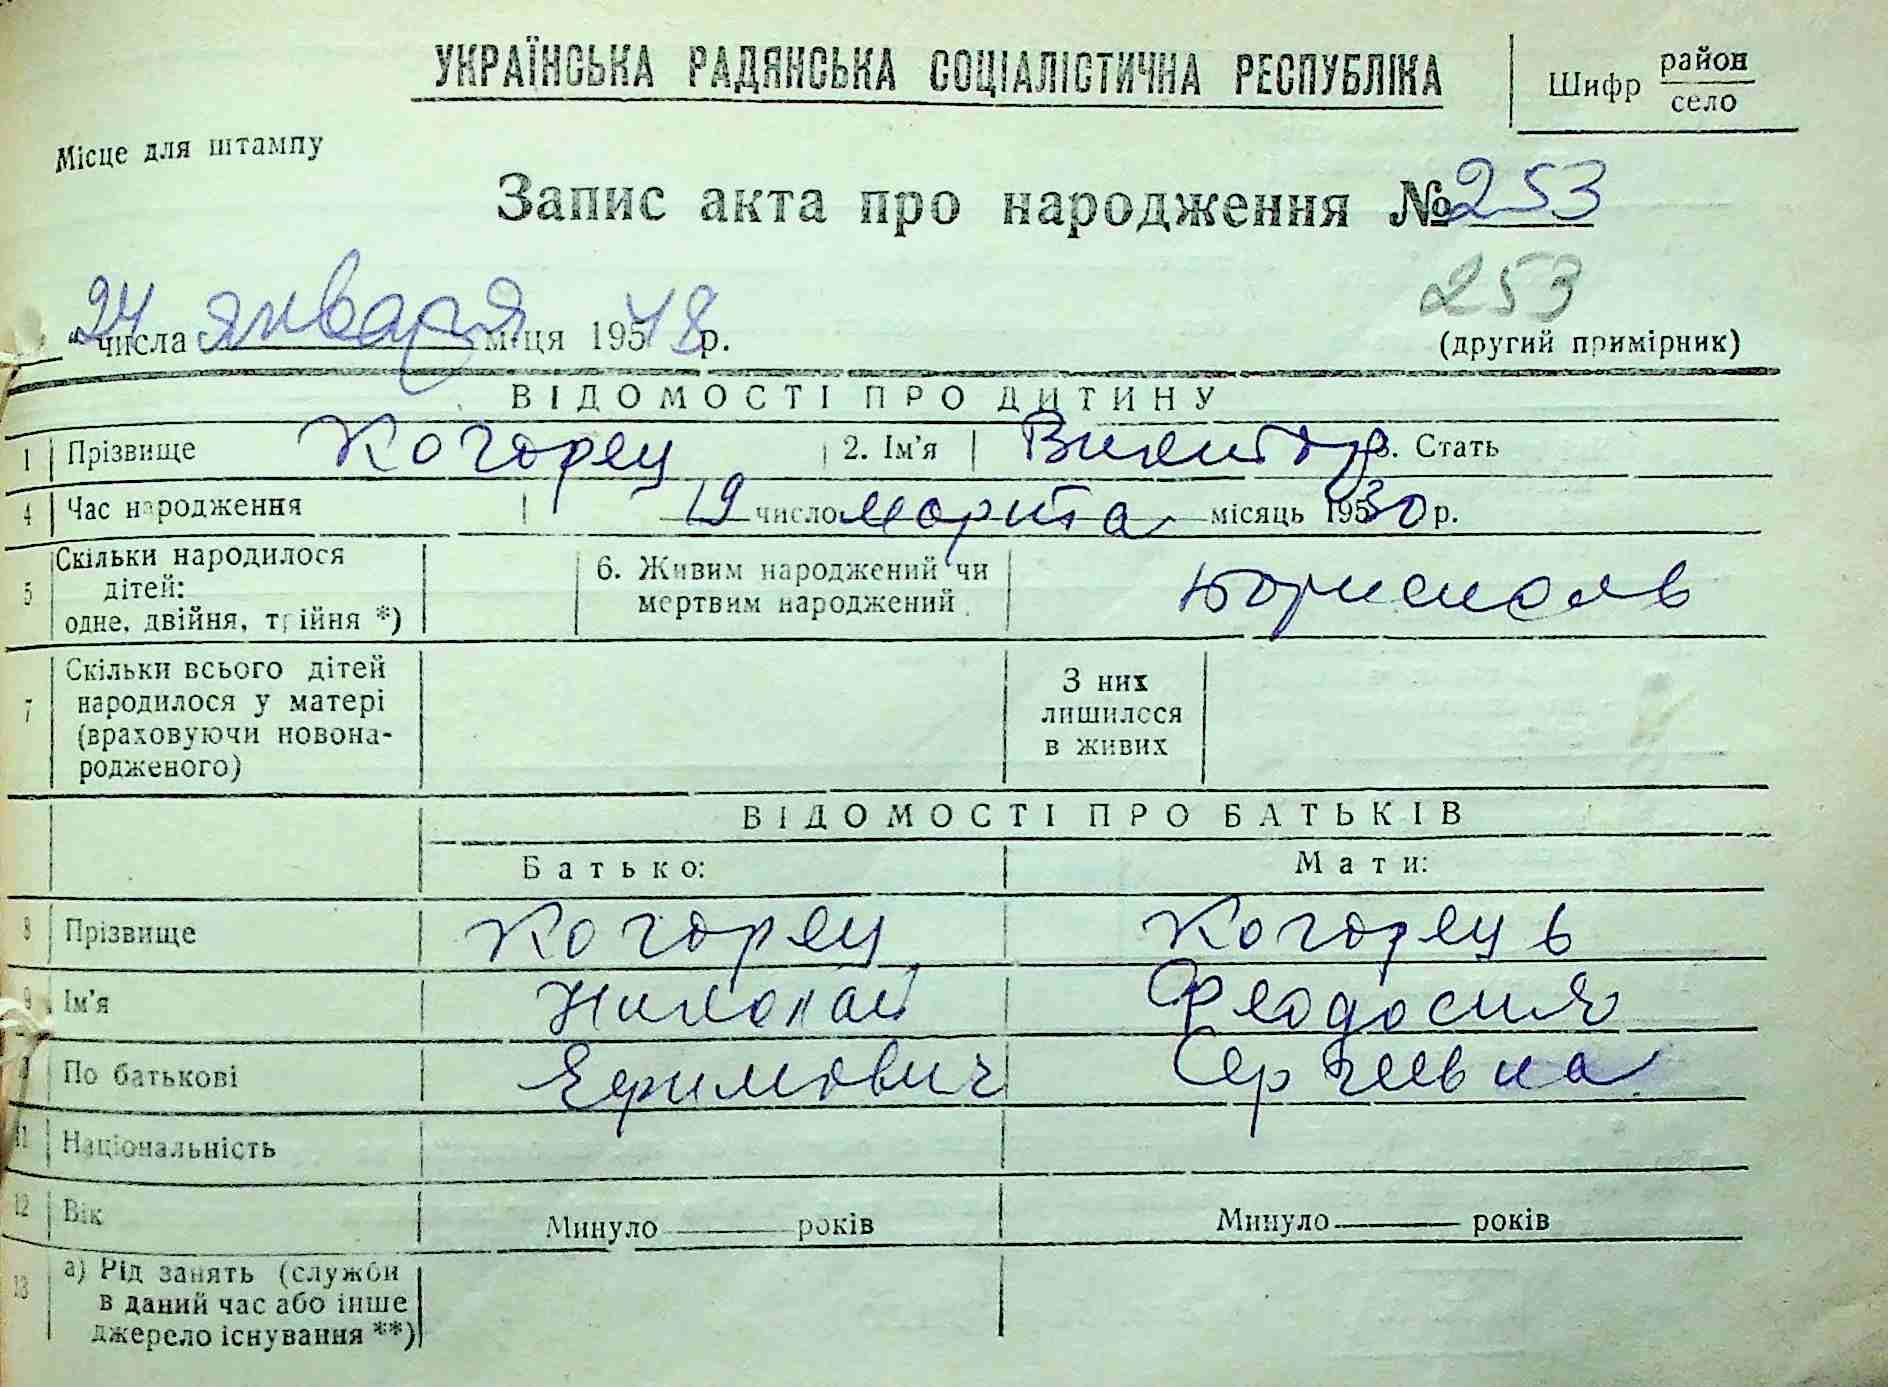 УКРАЇНСЬКА РАДЯНСЬКА СОЦІАЛІСТИЧНА РЕСПУБЛІКА
Шифр район
село
Місце для штампу
Запис акта про народження № 253
253
24 числа января м-ця 195 48 р.
(другий примірник)
ВІДОМОСТІ ПРО ДИТИНУ
1 Прізвище Когорец 2. Ім'я Виктор 3. Стать
4 Час народження 19 число марта місяць 195 30 р.
5 Скільки народилося дітей: одне, двійня, трійня *)
6. Живим народжений чи мертвим народжений Борисполь
7 Скільки всього дітей народилося у матері (враховуючи новонародженого)
З них лишилося в живих
ВІДОМОСТІ ПРО БАТЬКІВ
Батько: Мати:
8 Прізвище Когорец Когорець
9 Ім'я Николай Феодосия
По батькові Ефимович Сергеевна
11 Національність
12 Вік Минуло років Минуло років
13 а) Рід занять (служби в даний час або інше джерело існування **)